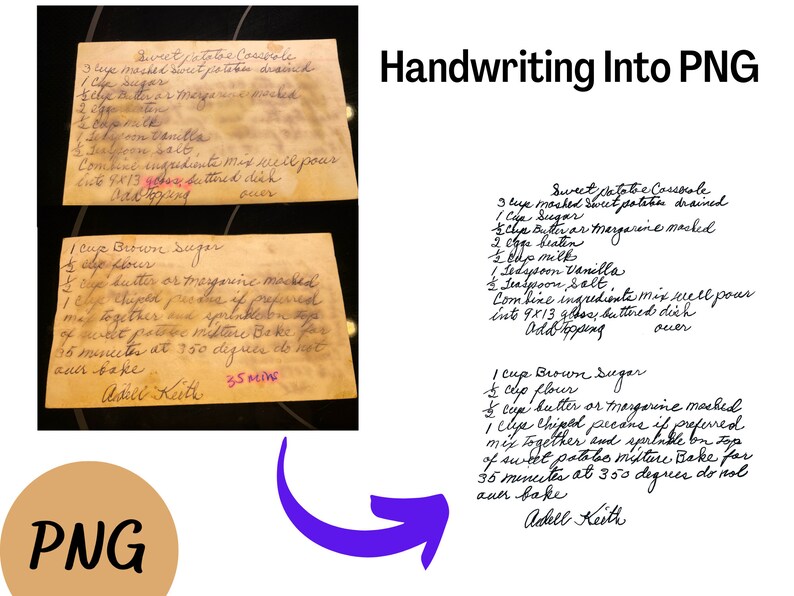 Sweet Potatoe Casserole
3 cup mashed sweet potatoes drained
1 Cup Sugar
½ Cup Butter or Margarine mashed
2 eggs beaten
½ cup milk
1 Teaspoon Vanilla
½ Teaspoon Salt
Combine ingredients mix well pour
into 9x13 glass, buttered dish
Add Topping over
1 Cup Brown Sugar
½ cup flour
½ cup butter or Margarine mashed
1 cup chiped pecans if preferred
mix together and sprinkle on top
of sweet potatoe mixture Bake for
35 minutes at 350 degrees do not
over bake
35 mins
Adell Keith
Handwriting Into PNG
Sweet Potatoe Casserole
3 cup mashed sweet potatoes drained
1 Cup Sugar
½ Cup Butter or Margarine mashed
2 eggs beaten
½ cup milk
1 Teaspoon Vanilla
½ Teaspoon Salt
Combine ingredients mix well pour
into 9x13 glass, buttered dish
Add Topping over
1 cup Brown Sugar
½ cup flour
½ cup butter or Margarine mashed
1 cup chiped pecans if preferred
mix together and sprinkle on top
of sweet potatoe mixture Bake for
35 minutes at 350 degrees do not
over bake
Adell Keith
PNG